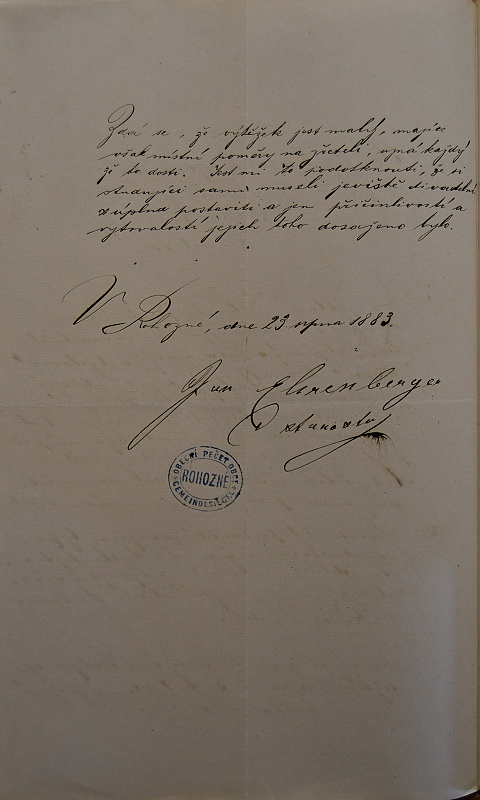 Zdá se, že výtěžek jest malý, majíce
však místní poměry na zřeteli, uzná každý
že to dosti. Jest mi to podotknouti, že si
studující sami museli jeviště divadelní
zúplna postaviti a jen přičinlivostí a
vytrvalostí jejich toho dosaženo bylo.
V Rohozné, dne 23 srpna 1883.
Jan Ehrenberger
starosta
OBECNÍ PEČEŤ OBCE
ROHOZNÉ
GEMEINDESIEGEL